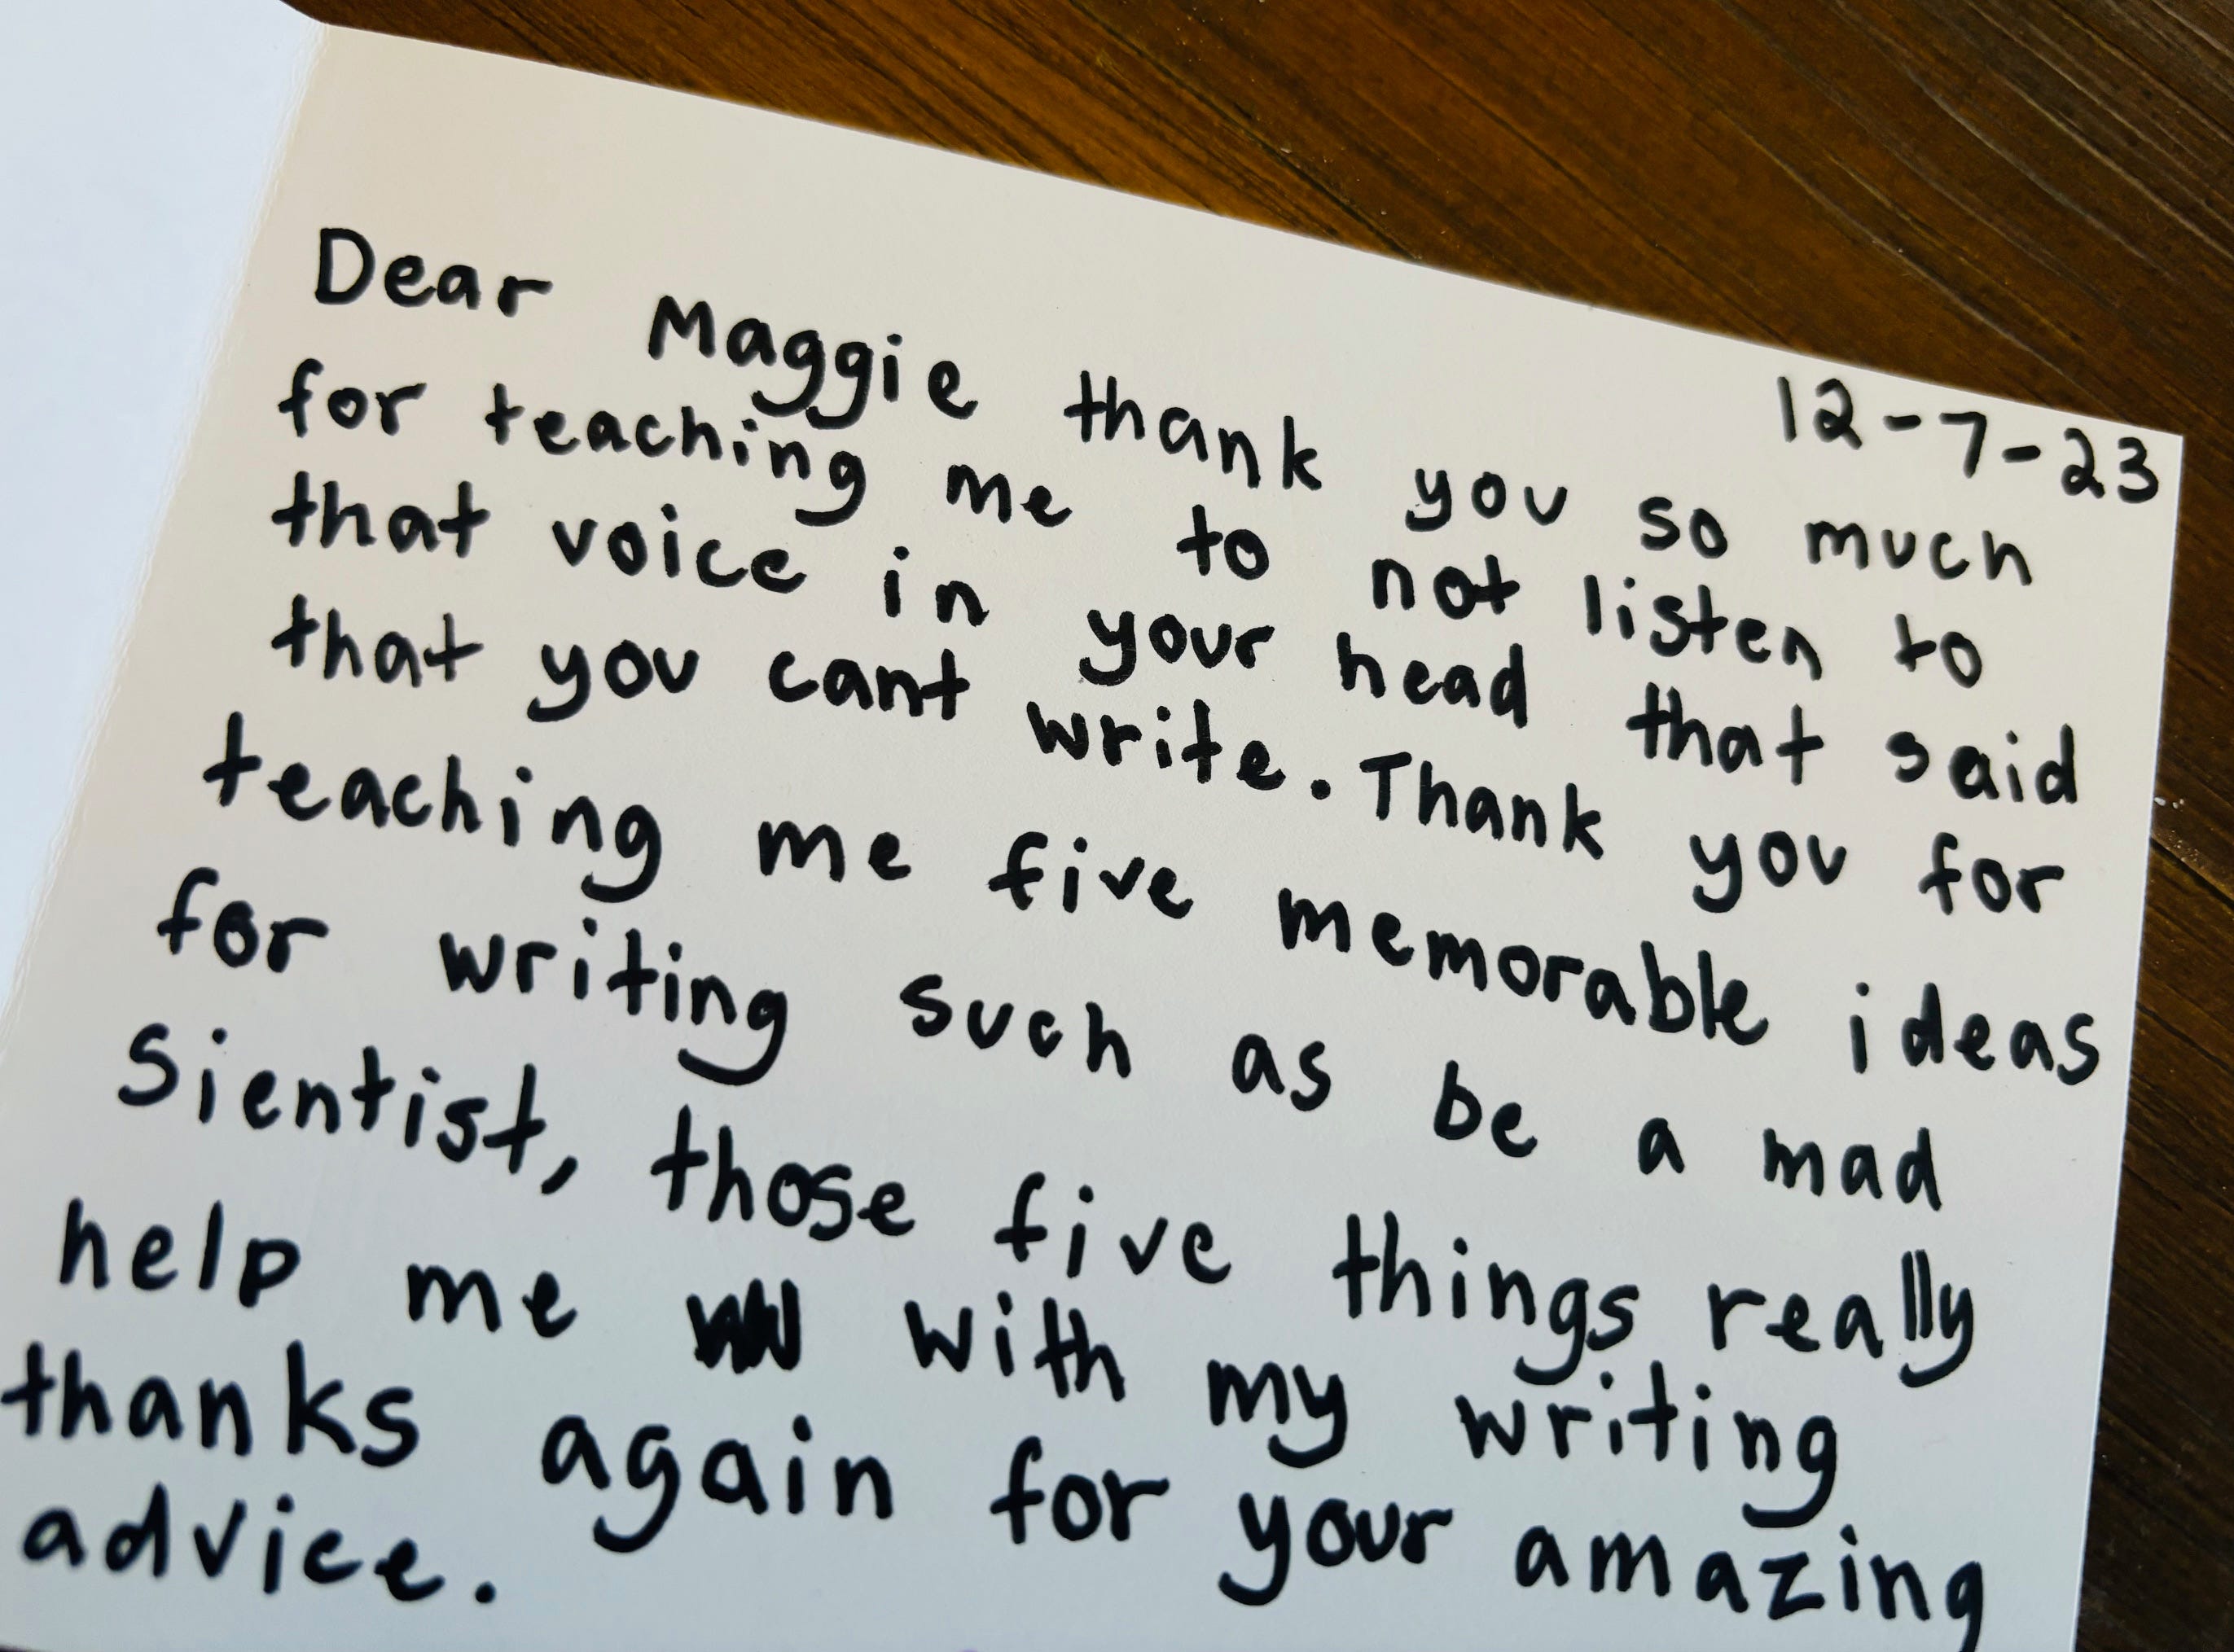 12-7-23
Dear Maggie thank you so much
for teaching me to not listen to
that voice in your head that said
that you cant write. Thank you for
teaching me five memorable ideas
for writing such as be a mad
Sientist, those five things really
help me with my writing
thanks again for your amazing
advice.